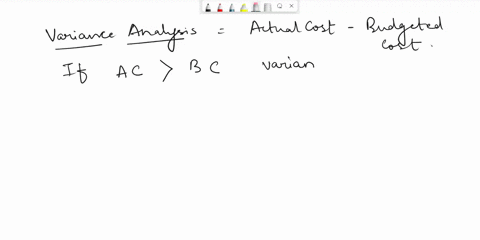 Variance Analysis = Actual Cost - Budgeted
Cost.
If AC > BC varian